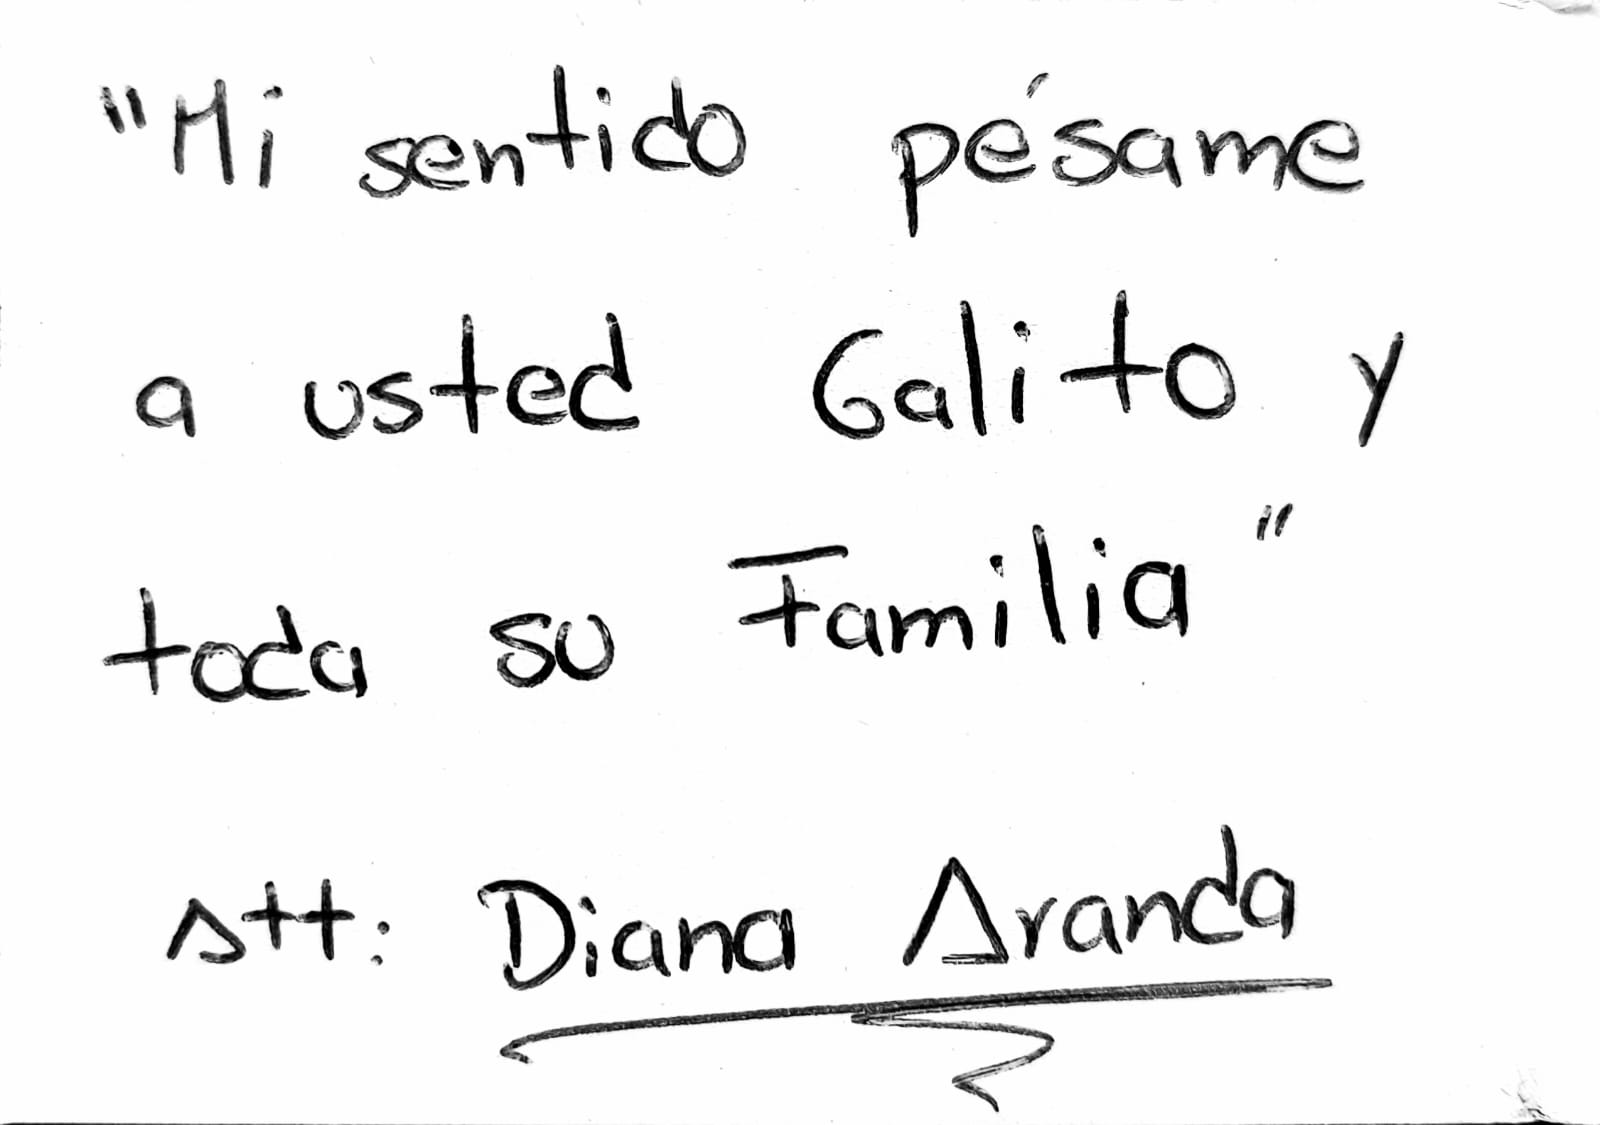 "Mi sentido pésame
a usted Galito y
toda su Familia"
Att: Diana Aranda